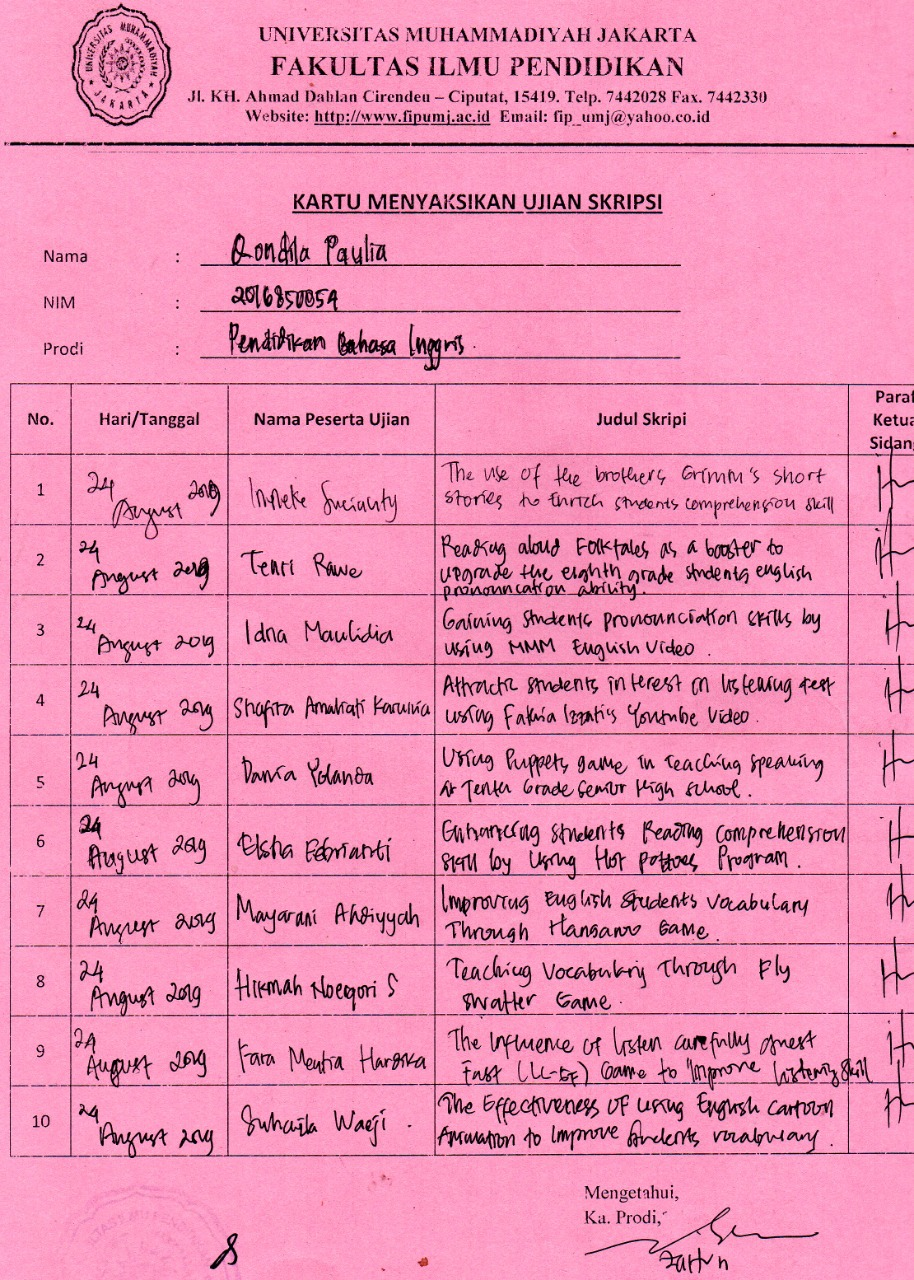 UNIVERSITAS MUHAMMADIYAH JAKARTA
FAKULTAS ILMU PENDIDIKAN
Jl. KH. Ahmad Dahlan Cirendeu – Ciputat, 15419. Telp. 7442028 Fax. 7442330
Website: http://www.fipumj.ac.id Email: fip_umj@yahoo.co.id
KARTU MENYAKSIKAN UJIAN SKRIPSI
Nama : Qondila Paulia
NIM : 2016850054
Prodi : Pendidikan Bahasa Inggris
No. Hari/Tanggal Nama Peserta Ujian Judul Skripi Paraf Ketua Sidang
1 24 August 2019 The use of the brothers Grimm's short
stories to Enrich students comprehension skill
2 24 August 2019 Tenri Rawe Reading aloud Folktales as a booster to
upgrade the eighth grade students english
pronouncation ability.
3 24 August 2019 Idna Maulidia Gaining students pronounciation skills by
using MMM English Video
4 24 August 2019 Shafira Amalrati Karunia Attractic students interest on listening test
using Fathia Izzati's Youtube Video.
5 24 August 2019 Dania Yolanda Using Puppets game in Teaching speaking
At Tenth Grade Senior High school.
6 24 August 2019 Elsha Febrianti Enhancing students Reading comprehension
skill by Using Hot potatoes Program.
7 24 August 2019 Mayarani Improving English students vocabulary
Through Hangaroo Game.
8 24 August 2019 Hikmah Noeqori S Teaching Vocabulary Through Fly
swatter Game.
9 24 August 2019 Fara Meutia The Influence of listen carefully guest
Fast (LC-GF) Game to "Improve listening skill
10 24 August 2019 Suhaila The Effectiveness of using English cartoon
Animation to Improve students vocabulary.
Mengetahui,
Ka. Prodi,